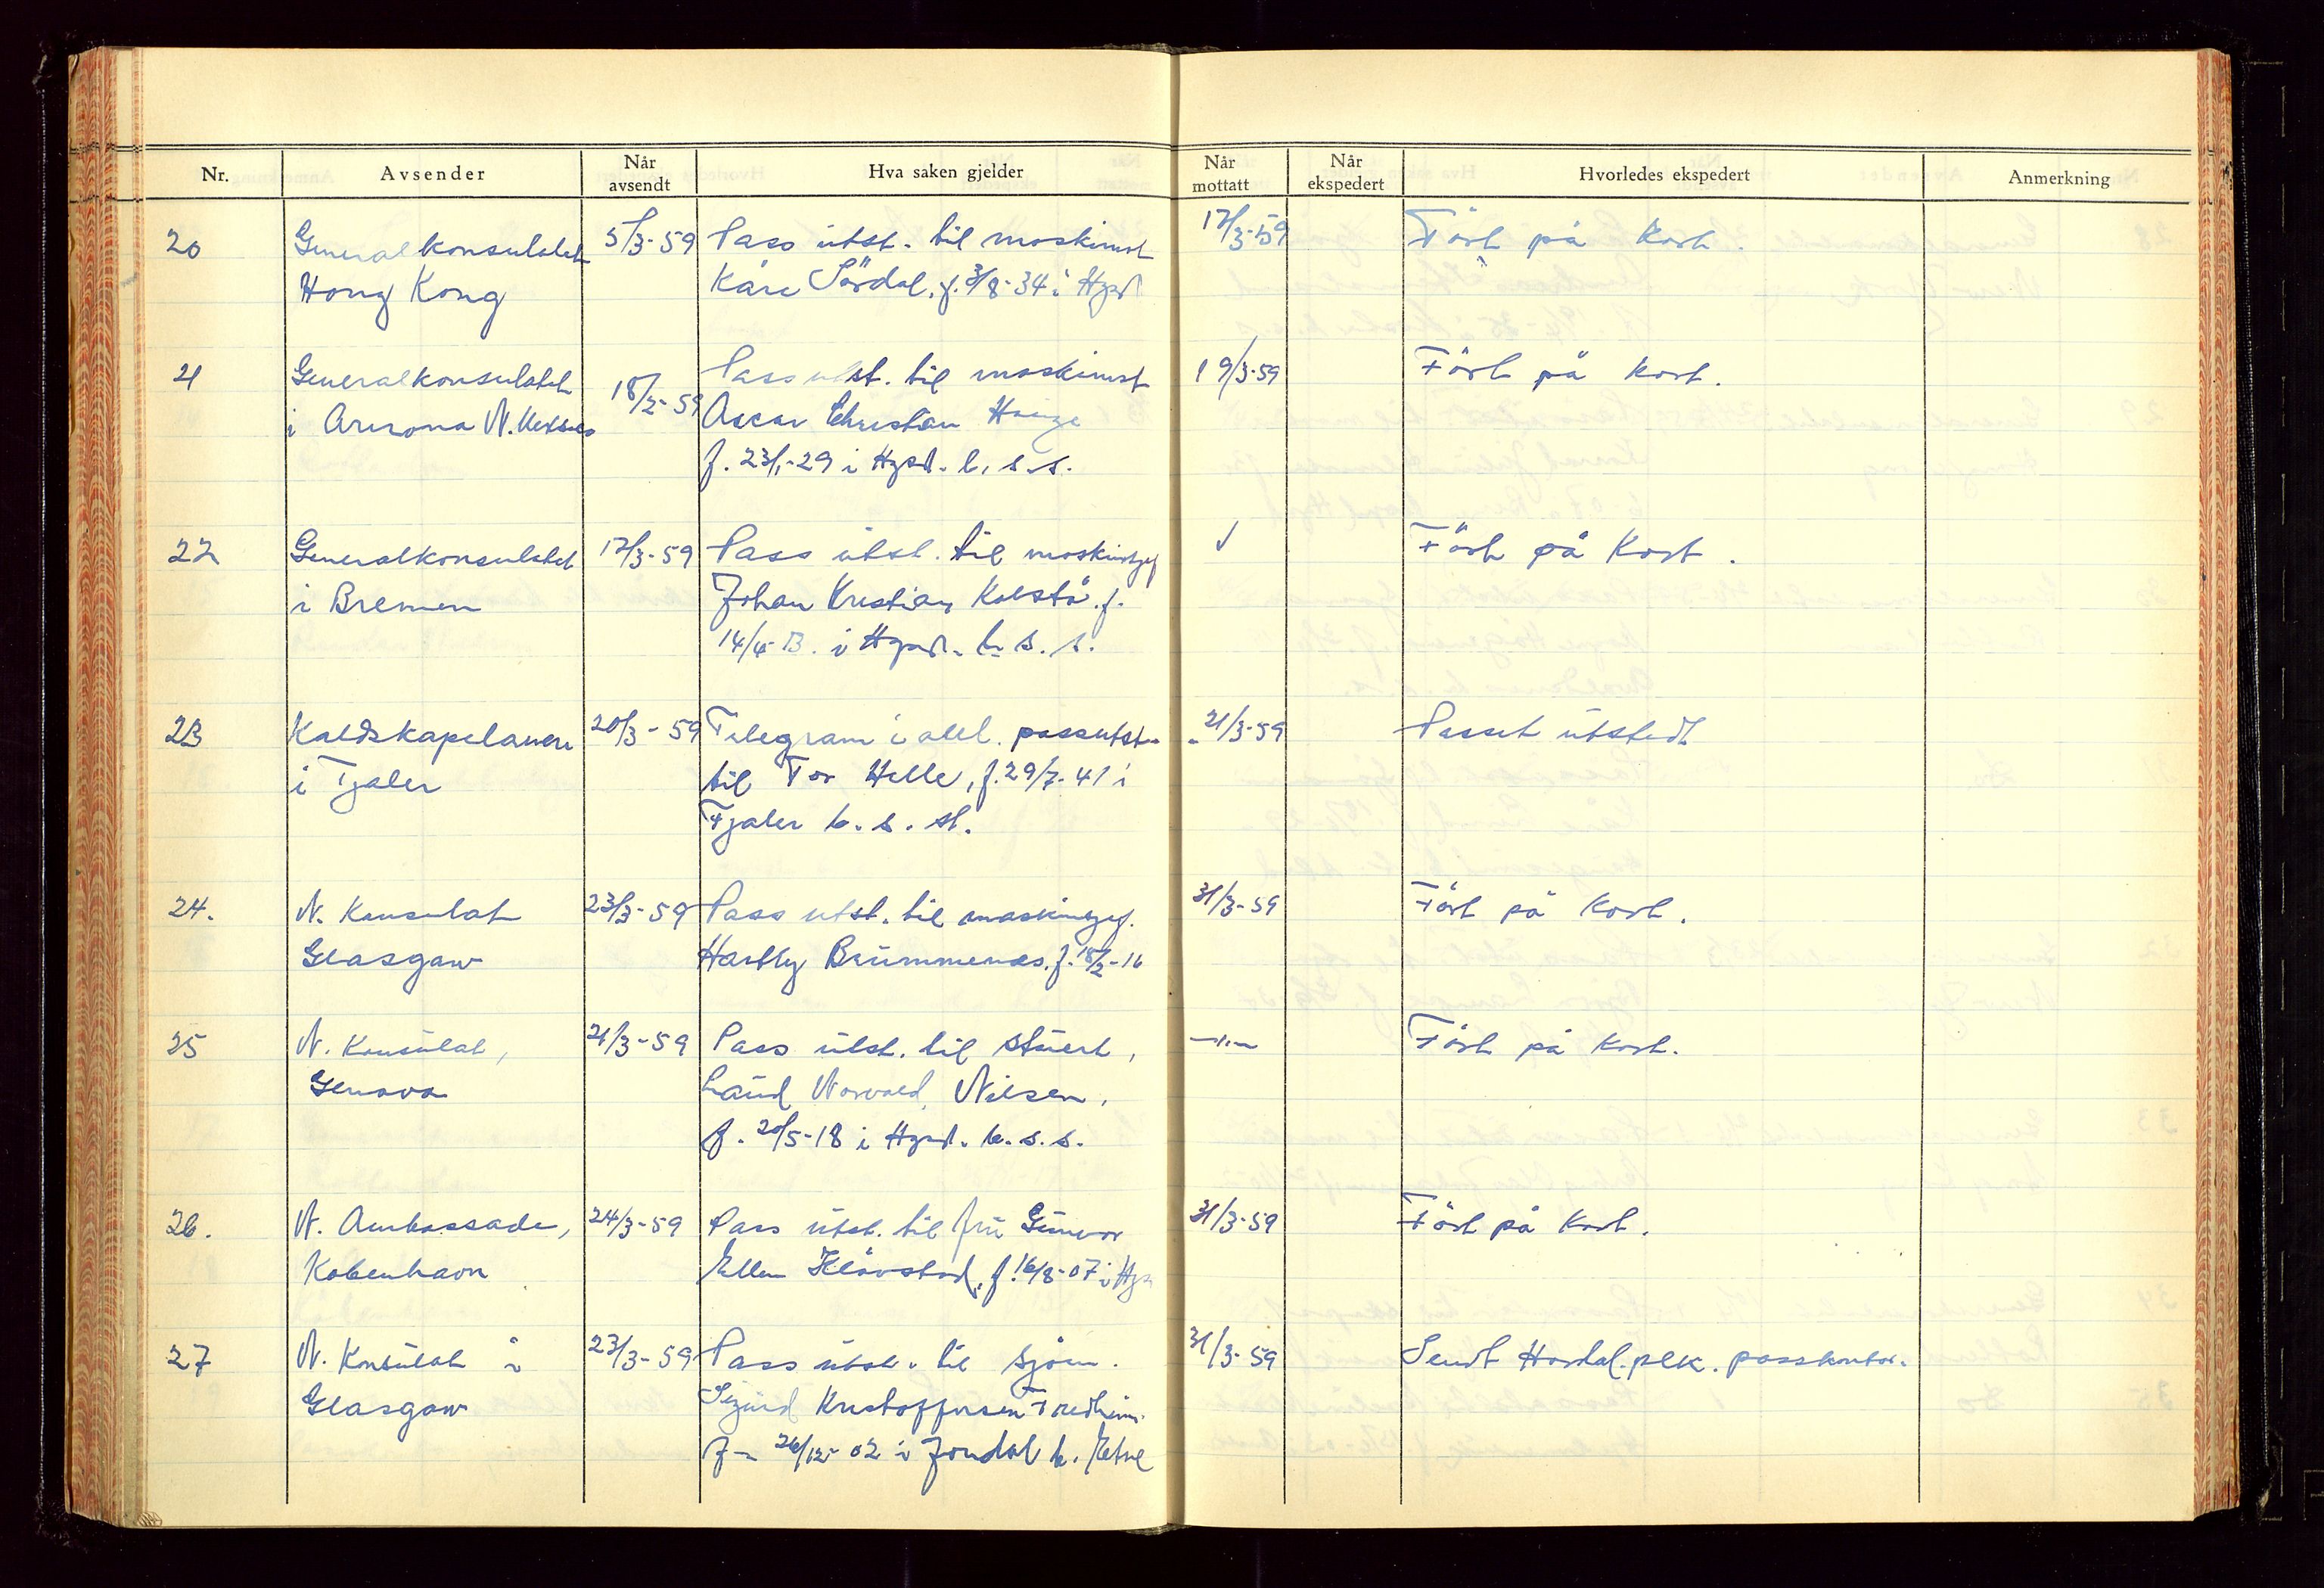 Nr. Avsender Når avsendt Hva saken gjelder Når mottatt Når ekspedert Hvorledes ekspedert Anmerkning
20 Generalkonsulatet 5/3-59 Pass utst. til maskinist 17/3-59 Ført på kort.
Hong Kong Kåre Sørdal, f. 3/8-34 i Hgsd
21 Generalkonsulatet 18/2-59 Pass utst. til maskinist 19/3-59 Ført på kort.
i Arizona N. Oscar Christian Hauge
f. 23/1-29 i Hgsd. b. s. s.
22 Generalkonsulatet 17/3-59 Pass utst. til maskinsjef √ Ført på kort.
i Bremen Johan Kristian Kolstø. f.
14/4-13. i Hgsd. b. s. s.
23 Kaldskapelanen 20/3-59 Telegram i anl. passutst. 21/3-59 Passet utstedt
i Fjaler til Tor Helle, f. 29/7-41 i
Fjaler b. s. st.
24. N. Konsulat 23/3-59 Pass utst. til maskinsjef. 31/3-59 Ført på kort.
Glasgaw Hartly Brummenæs. f. 18/2-16
25 N. Konsulat, 21/3-59 Pass utst. til stuert, —"— Ført på kort.
Genova Laud Norvald, Nilsen,
f. 20/5-18 i Hgsd. b. s. s.
26. N. Ambassade, 24/3-59 Pass utst. til fru Gunvor 31/3-59 Ført på kort.
Kobenhavn Ellen Kløvstad, f. 16/8-07 i Hgs
27 N. Konsulat i 23/3-59 Pass utst. til sjøm. 31/3-59 Sendt Hordal. plk. passkontor.
Glasgaw Sigurd Kristoffersen Tredheim.
f. 26/12-02 i Jondal b. Etne